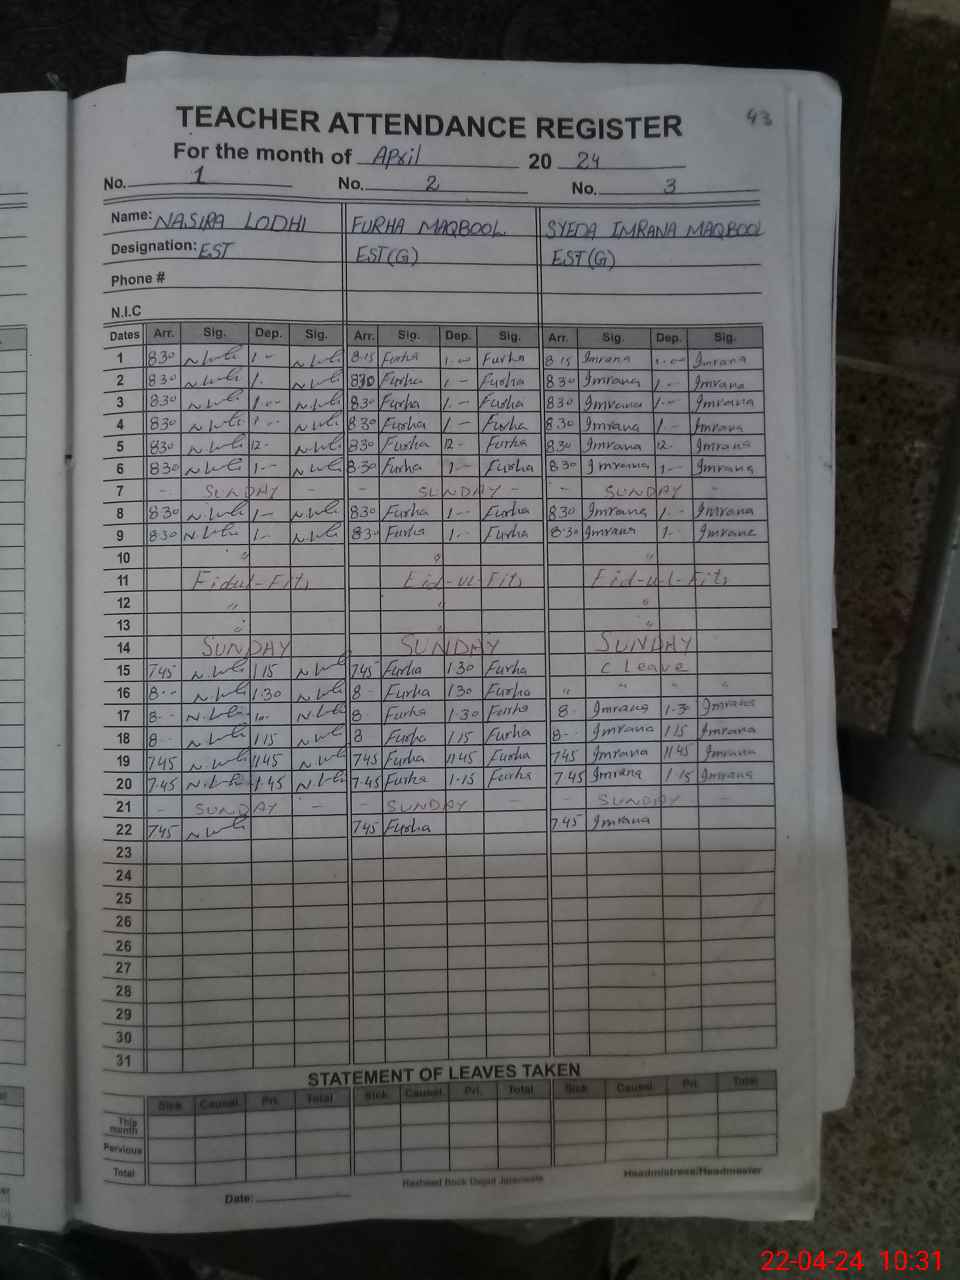 43
TEACHER ATTENDANCE REGISTER
For the month of April 20 24
No. 1 No. 2 No. 3
Name: NASIRA LODHI FURHA MAQBOOL SYEDA IMRANA MAQBOOL
Designation: EST EST(G) EST(G)
Phone #
N.I.C
Dates Arr. Sig. Dep. Sig. Arr. Sig. Dep. Sig. Arr. Sig. Dep. Sig.
1 830 1-- 8-15 Furha 1.00 Furha 815 Imrana 1.00 Imrana
2 830 1. 830 Furha 1-- Furha 830 Imrana 1-- Imrana
3 830 1.-- 830 Furha 1.-- Furha 830 Imrana 1.-- Imrana
4 830 1-- 830 Furha 1-- Furha 8.30 Imrana 1-- Imrana
5 830 12- 830 Furha 12- Furha 830 Imrana 12- Imrana
6 830 1-- 8.30 Furha 1-- Furha 830 Imrana 1-- Imrana
7 - SUNDAY - - SUNDAY - - SUNDAY -
8 830 1-- 830 Furha 1-- Furha 830 Imrana 1-- Imrana
9 830 1-- 830 Furha 1-- Furha 8.30 Imrana 1-- Imrana
10 " " "
11 Eidul-Fitr Eid-ul-Fitr Eid-ul-Fitr
12 " " "
13 " " "
14 SUNDAY SUNDAY SUNDAY
15 745 115 745 Furha 130 Furha C Leave
16 8-- 1.30 8- Furha 130 Furha " " " "
17 8-- 8- Furha 1-30 Furha 8- Imrana 1-30 Imrana
18 8-- 115 8 Furha 1.15 Furha 8-- Imrana 115 Imrana
19 745 1145 745 Furha 1145 Furha 745 Imrana 1145 Imrana
20 7.45 1.45 7.45 Furha 1.15 Furha 7.45 Imrana 1.15 Imrana
21 - SUNDAY - - SUNDAY - SUNDAY -
22 745 745 Furha 7.45 Imrana
23
24
25
26
26
27
28
29
30
31
STATEMENT OF LEAVES TAKEN
Sick Causel. Pri. Total Sick Causel. Pri. Total Sick Causel. Pri. Total
This month
Pervious
Total
Date: Rasheed Book Depot Headmistress/Headmaster
22-04-24 10:31